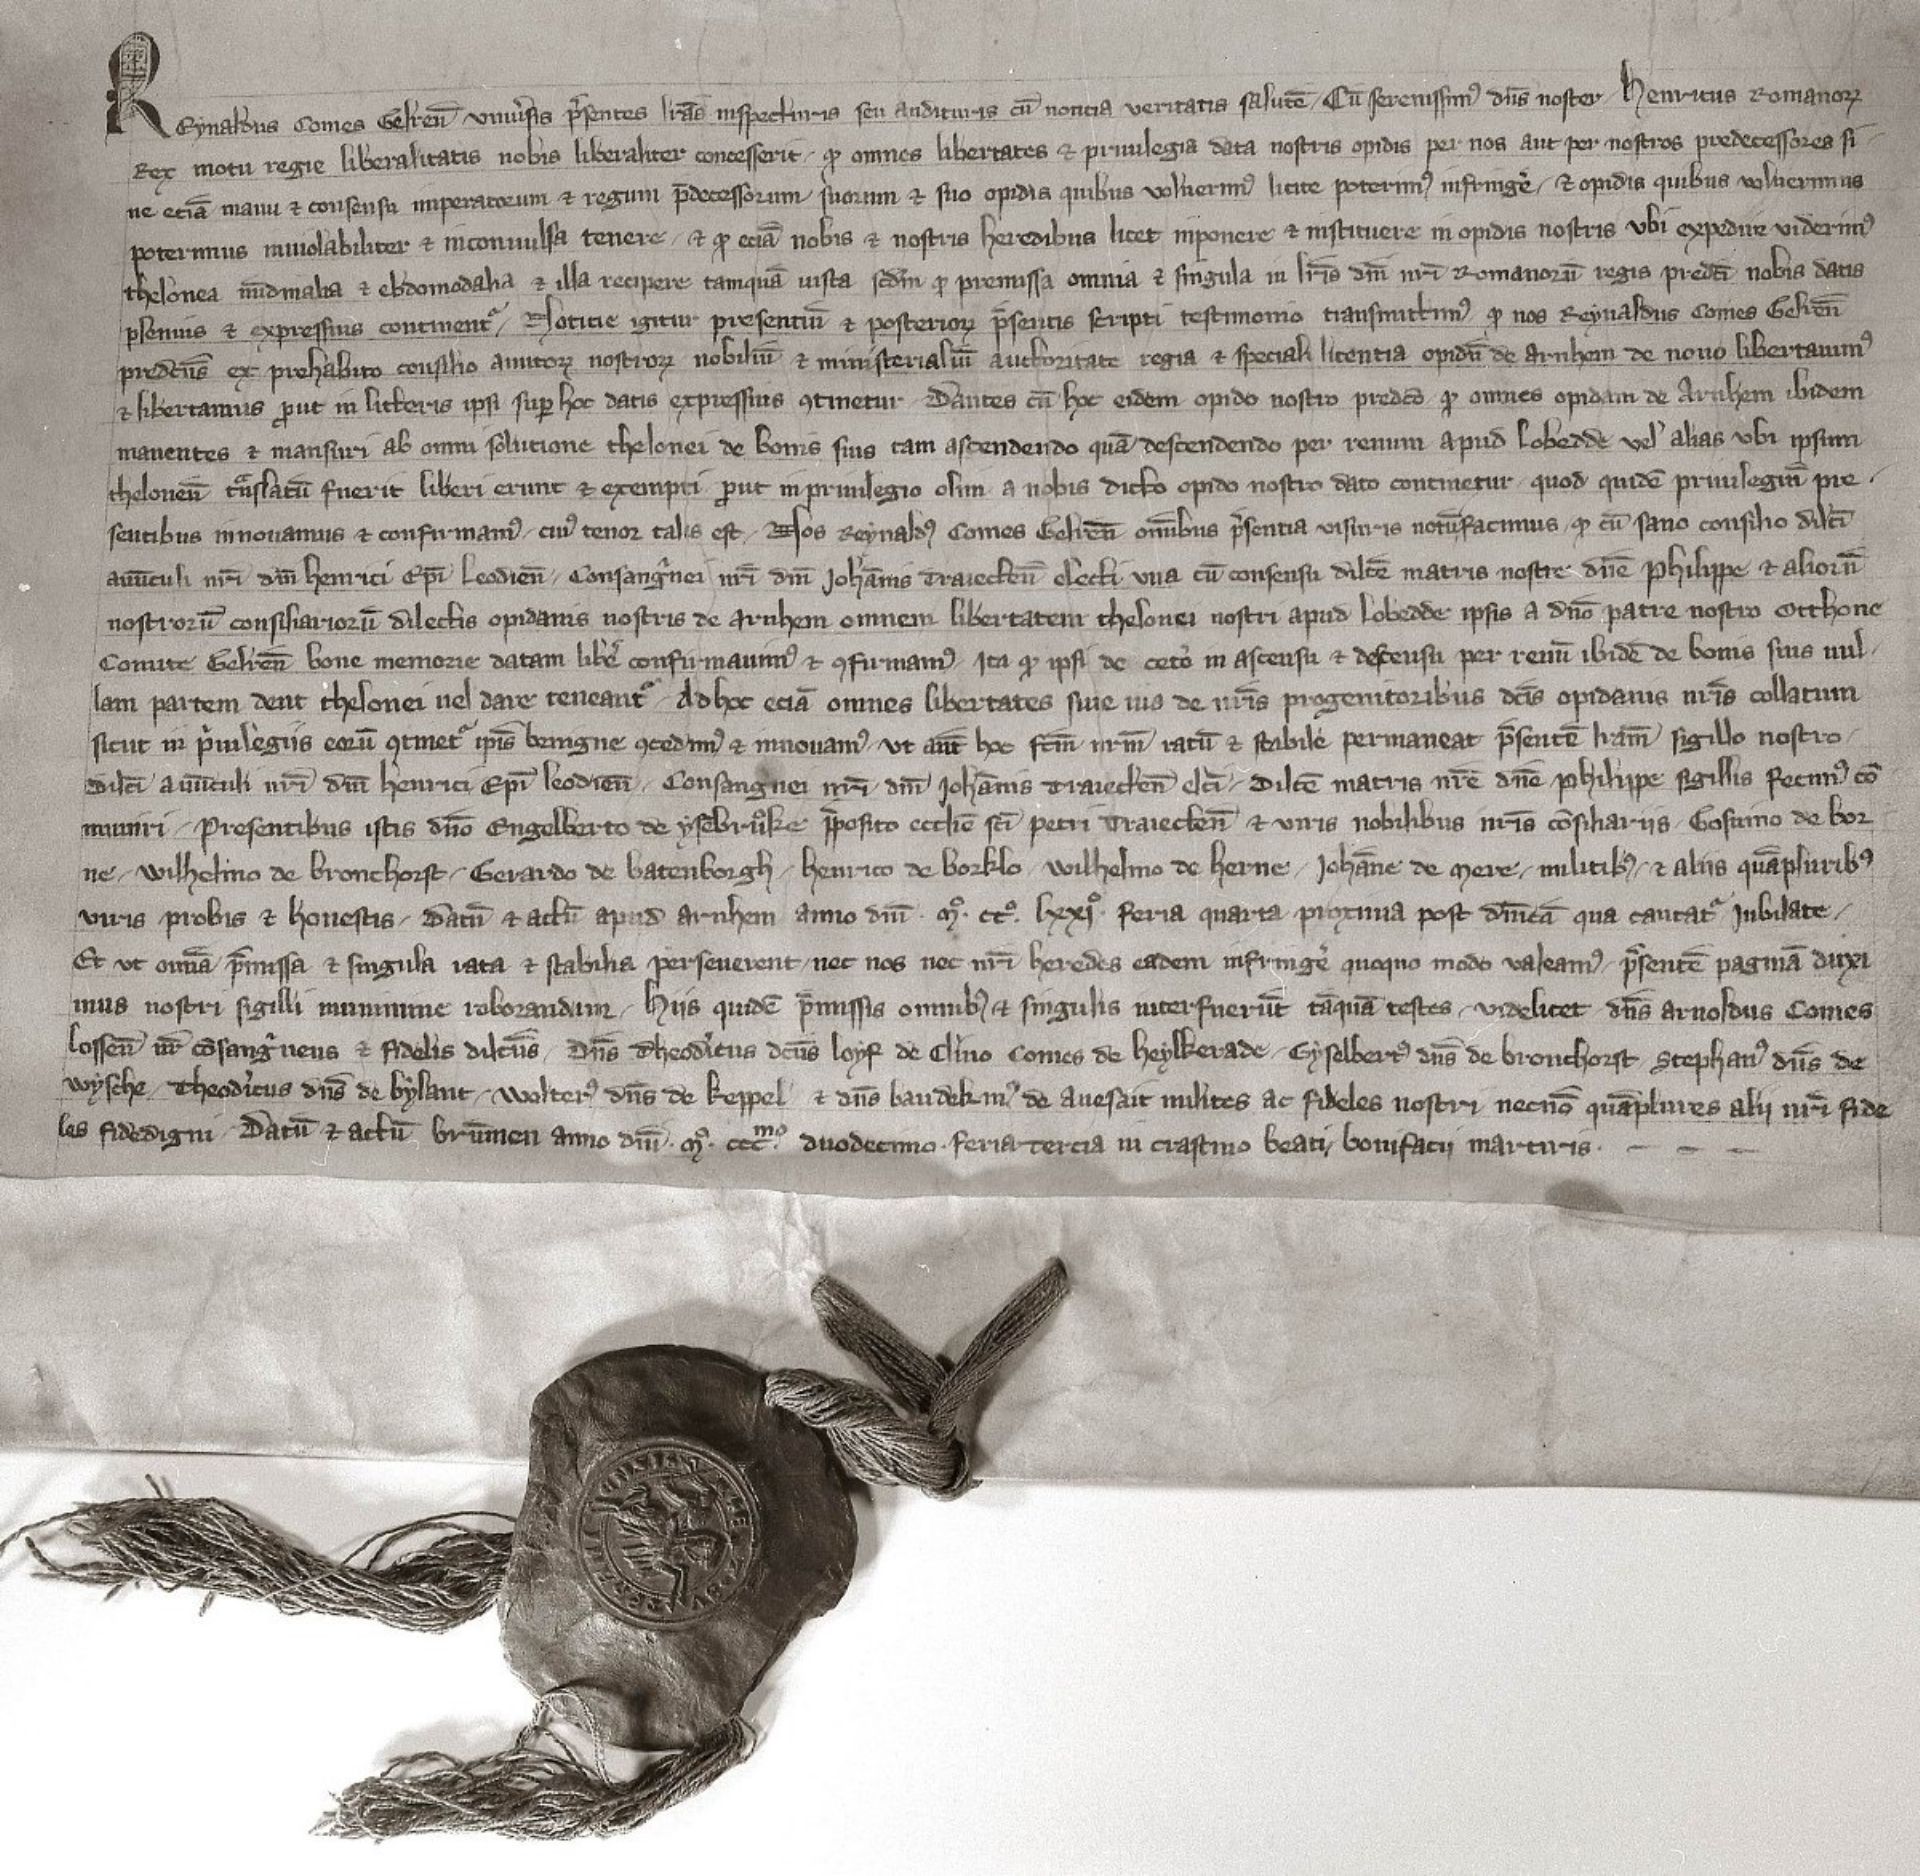 REynaldus Comes Gelreñ vniu̾sis p̾sentes l̄r̄as inspecturis seu audituris cū noticia veritatis salutē / Cū serenissim⁹ dn̄s noster Henricus Romanoꝝ
Rex motu regie liberalitatis nobis liberaliter concesserit / ꝙ omnes libertates ⁊ priuilegia data nostris opidis per nos aut per nostros predecessores si-
ne eciā manu ⁊ consensu imperatorum ⁊ regum p̄decessorum suorum ⁊ suo opidis quibus voluerim⁹ licite poterim⁹ infringe̾ / ⁊ opidis quibus voluerimus
poterimus inuiolabiliter ⁊ inconuulsa tenere / ⁊ ꝙ eciā nobis ⁊ nostris heredibus licet inponere ⁊ instituere in opidis nostris vbi expedire viderim⁹
thelonea nūdinalia ⁊ ebdomodalia ⁊ illa recipere tamquā iusta scd̄m ꝙ premissa omnia ⁊ singula in lr̄is dn̄i nr̄i Romanorū regis predc̄i nobis datis
plenius ⁊ expressius continent᷑ / Noticie igitur presentiū ⁊ posterioꝝ p̄sentis scripti testimonio transmittim⁹ ꝙ nos Reynaldus Comes Gelreñ
predc̄us ex prehabito consilio amicoꝝ nostroꝝ nobiliū ⁊ ministerialiū auctoritate regia ⁊ speciali licentia opidū de arnhem de nouo libertauim⁹
⁊ libertamus ꝓut in litteris ipsi suꝑ hoc datis expressius ꝯtinetur / Dantes cū hoc eidem opido nostro predc̄o ꝙ omnes opidani de Arnhem ibidem
manentes ⁊ mansuri ab omni solutione thelonei de bonis suis tam ascendendo quā descendendo per renum apud lobedde vel alias vbi ipsum
theloneū tr̄nslatū fuerit liberi erunt ⁊ exempti ꝓut in priuilegio olim a nobis dicto opido nostro dato continetur / quod quidē priuilegiū pre-
sentibus innouamus ⁊ confirmam⁹ / cui⁹ tenor talis est / Nos Reynald⁹ Comes Gelreñ om̄ibus p̄sentia visuris notū facimus / ꝙ cū sano consilio dilc̄i
auūculi nr̄i dn̄i henrici Ep̄i leodieñ / Consang̾nei nr̄i dn̄i Joh̄anis Traiecteñ electi vna cū consensu dilc̄e matris nostre dn̄e Philippe ⁊ aliorū
nostrorū consiliariorū dilectis opidanis nostris de Arnhem omnem libertatem thelonei nostri apud lobedde ipsis a dn̄o patre nostro Otthone
Comite Gelreñ bone memorie datam libe̾ confirmauim⁹ ⁊ ꝯfirmam⁹ / Ita ꝙ ipsi de cete̾o in ascensu ⁊ descensu per renū ibidē de bonis suis nul-
lam partem dent thelonei uel dare teneant᷑ / Ad hoc eciā omnes libertates siue ius de nr̄is progenitoribus dc̄is opidanis nr̄is collatum
sicut in p̾uilegiis eorū ꝯtinet᷑ ip̄is benigne ꝯcedim⁹ ⁊ innouam⁹ / vt aūt hoc fc̄m nr̄m ratū ⁊ stabile permaneat p̄sentē l̄r̄am sigillo nostro /
Dilc̄i auūculi nr̄i dn̄i henrici Ep̄i leodieñ / Consangnei nr̄i dn̄i Joh̄anis Traiecteñ elc̄i / Dilc̄e matris nr̄e dn̄e Philippe sigillis fecim⁹ cō
muniri / Presentibus istis dn̄o Engelberto de ysebrůke p̄posito eccl̄ie sc̄i petri Traiecteñ ⁊ viris nobilibus nr̄is cōsiliariis / Gossuino de bor
ne / Wilhelmo de bronchorst / Gerardo de batenborgh / henrico de borklo / Wilhelmo de herne / Joh̄anne de Mere / militib⁹ / ⁊ aliis quāpluribus
viris probis ⁊ honestis / Datū ⁊ actū apud arnhem anno dn̄i · M̊ · cc̊ · lxxi̊ · feria quarta proxima post dn̄icā qua cantat᷑ Jubilate /
Et vt omīa p̄missa ⁊ singula rata ⁊ stabilia perseuerent / nec nos nec nr̄i heredes eadem infringe̾ quoquo modo valeam⁹ / p̄sentē paginā duxi
mus nostri sigilli munimine roborandam / Hiis quidē p̄missis omnib⁹ ⁊ singulis interfuerūt tāquā testes / videlicet dn̄s arnoldus Comes
losseñ nr̄ cōsang̾neus ⁊ fidelis dilc̄us / Dn̄s Theod̾icus dc̄us loyf de Cliuo Comes de heylkerade / Gyselbert⁹ dn̄s de bronchorst / Stephan⁹ dn̄s de
wysche / Theod̾icus dn̄s de bylant / Wolter⁹ dn̄s de keppel ⁊ dn̄s baudekin⁹ de auesait milites ac fideles nostri necnō quāplures alii nr̄i fide
les fidedigni / Datū ⁊ actū brūmen anno dn̄i · M̊ · cccᵐ̊ · duodecimo · feria tercia in crastino beati bonifacii martiris · — — —